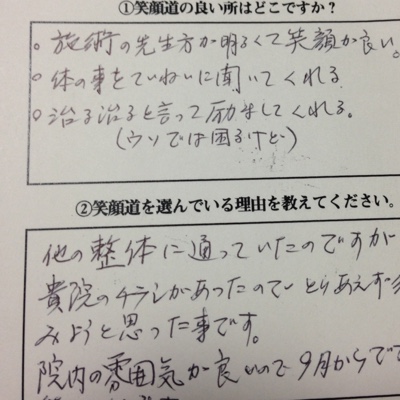 ①笑顔道の良い所はどこですか？
○施術の先生方が明るくて笑顔が良い。
○体の事をていねいに聞いてくれる
○治る治ると言って励ましてくれる。
（ウソでは困るけど）
②笑顔道を選んでいる理由を教えてください。
他の整体に通っていたのですが
貴院のチラシがあったのでとりあえず
みようと思った事です。
院内の雰囲気が良いので9月からで